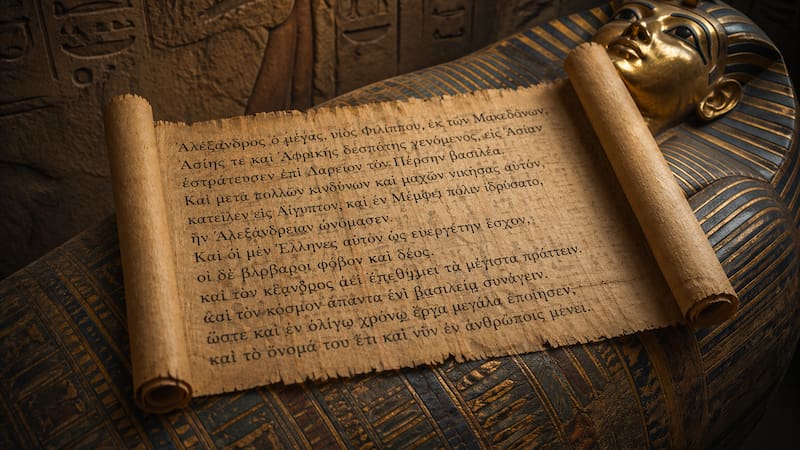 Ἀλέξανδρος ὁ μέγας, υἱὸς Φιλίππου, ἐκ τῶν Μακεδόνων,
Ἀσίης τε καὶ Ἀφρικῆς δεσπότης γενόμενος, εἰς Ἀσίαν
ἐστράτευσεν ἐπὶ Δαρεῖον τὸν Πέρσην βασιλέα.
Καὶ μετὰ πολλῶν κινδύνων καὶ μαχῶν νικήσας αὐτὸν,
κατεῖλεν εἰς Αἴγυπτον, καὶ ἐν Μέμφει πόλιν ἱδρύσατο,
ἣν Ἀλεξάνδρειαν ὠνόμασεν.
Καὶ οἱ μὲν Ἕλληνες αὐτὸν ὡς εὐεργέτην ἔσχον,
οἱ δὲ βλρβαροι φόβον καὶ δέος.
καὶ τὸν κξανδρος ἀεὶ ἐπεθύμει τὰ μέγιστα πράττειν.
τὸν κοσμον ἅπαντα ἑνὶ βασιλείᾳ συνάγειν.
ὥστε καὶ ἐν ὀλίγῳ χρόνῳ ἔργα μεγάλα ἐποίησεν,
καὶ τὸ ὄνομά του ἔτι καὶ νῦν ἐν ἀνθρώποις μένει.